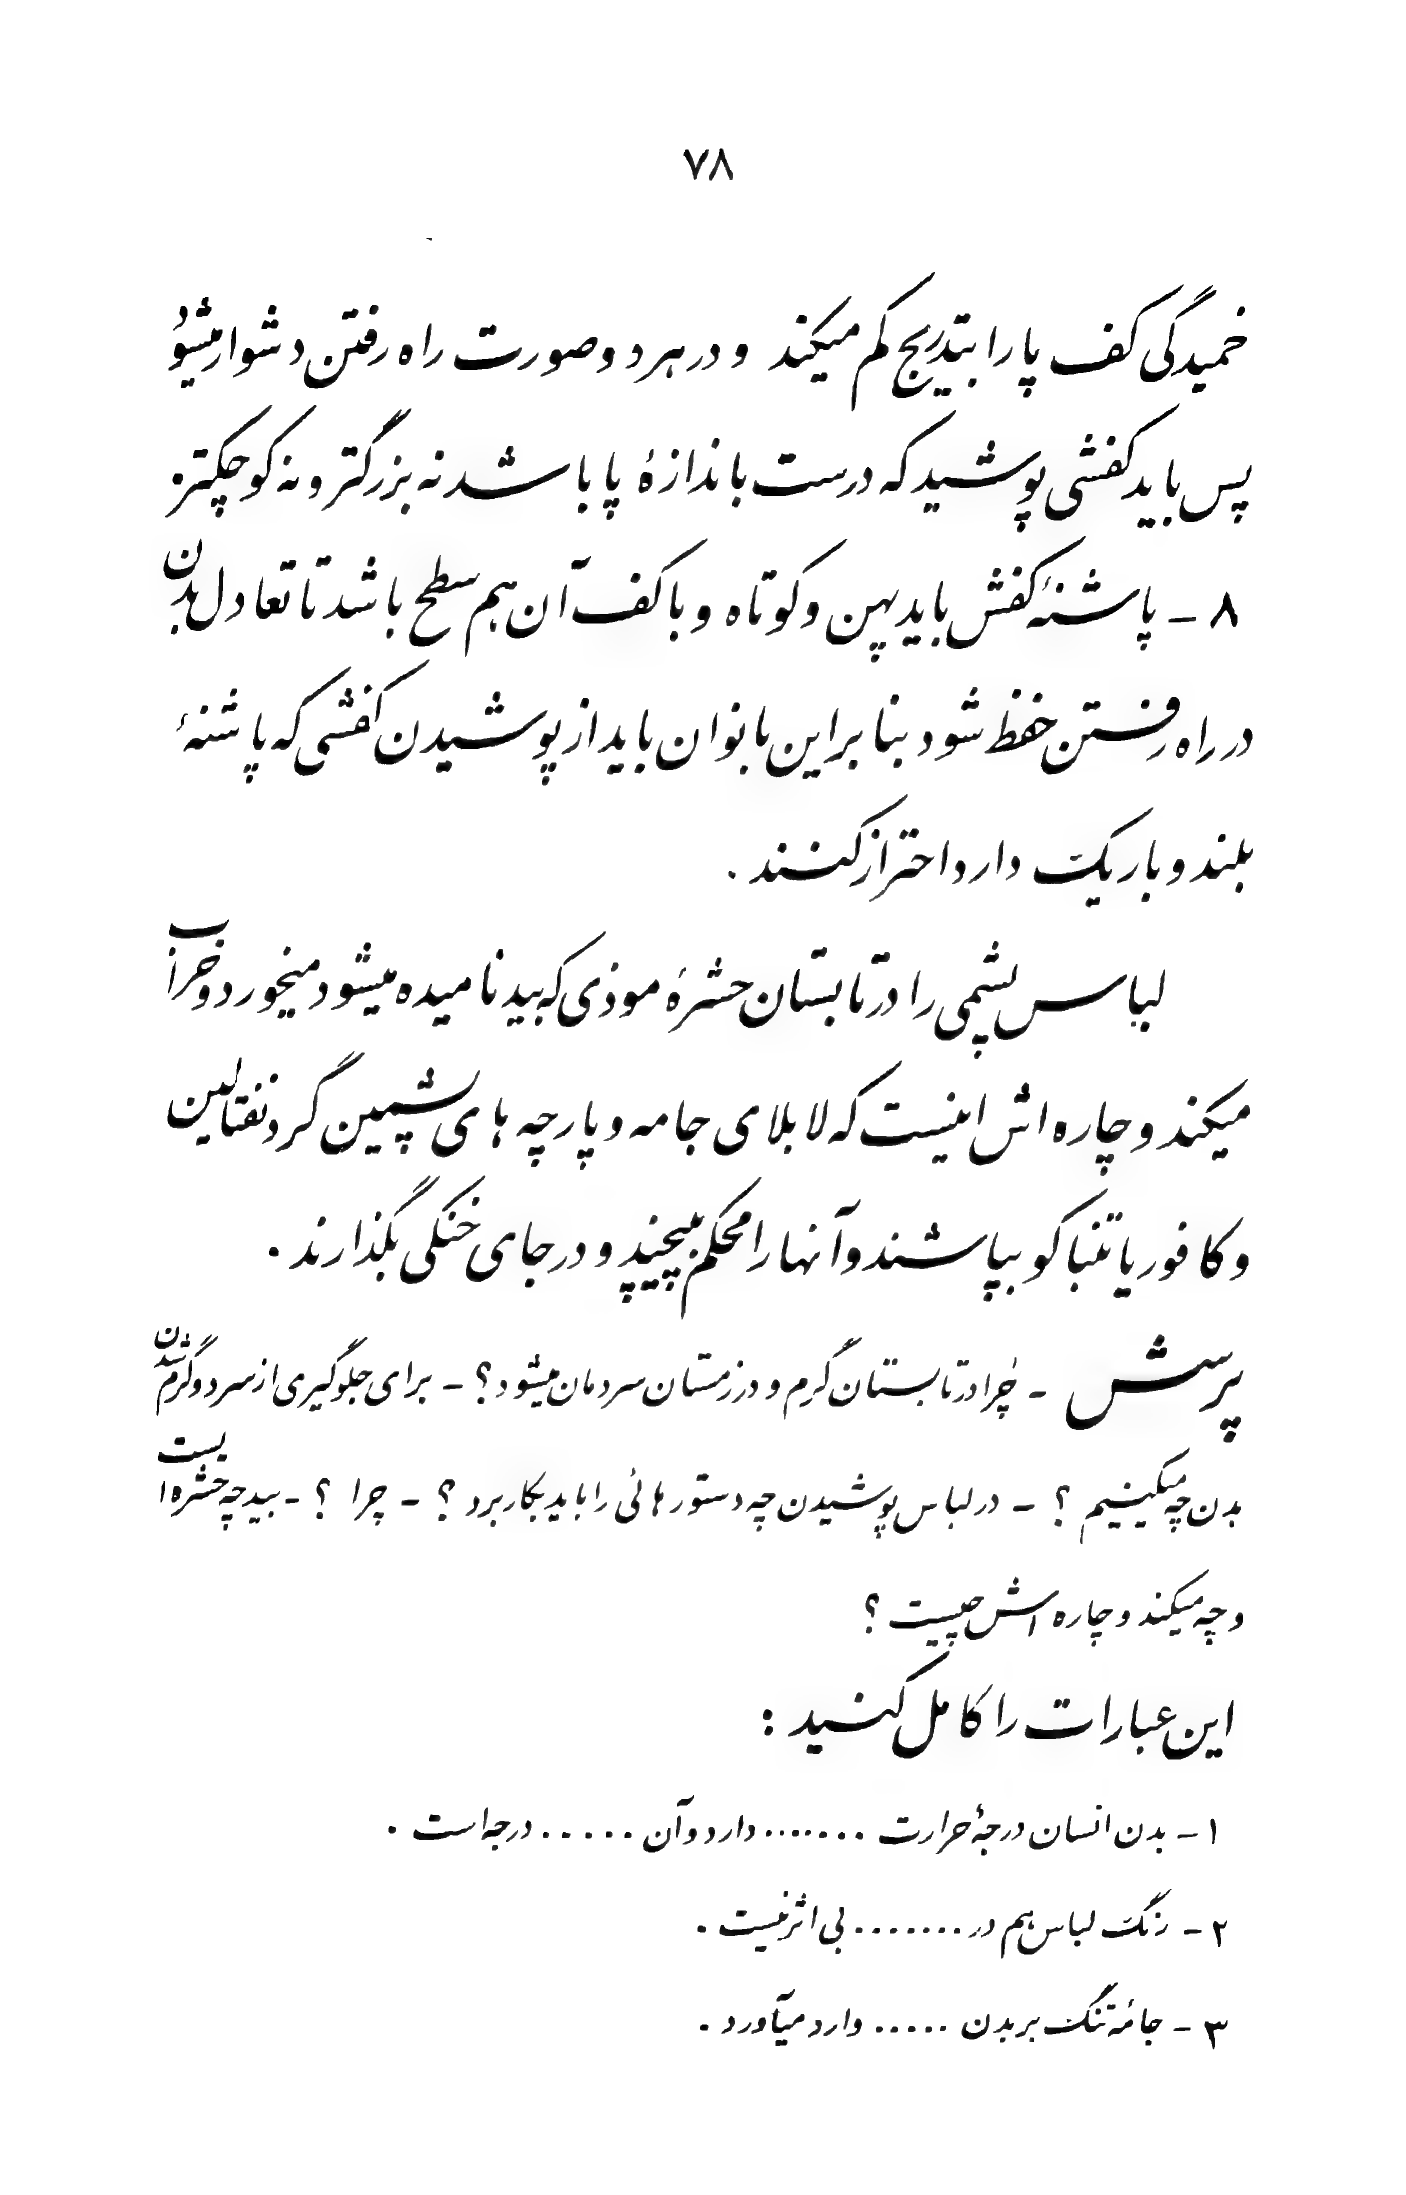 ۷۸
خمیدگی کف پا را بتدریج کم میکند و در هر دو صورت راه رفتن دشوار میشود
پس باید کفشی پوشید که درست باندازهٔ پا باشد نه بزرگتر و نه کوچکتر.
۸ - پاشنهٔ کفش باید پهن و کوتاه و با کف آن هم سطح باشد تا تعادل بدن
در راه رفتن حفظ شود بنابراین بانوان باید از پوشیدن کفشی که پاشنهٔ
بلند و باریک دارد احتراز کنند .
لباس پشمی را در تابستان حشرهٔ موذی که بید نامیده میشود میخورد و خراب
میکند و چاره اش اینست که لابلای جامه و پارچه های پشمین گرد نفتالین
و کافور یا تنباکو بپاشند و آنها را محکم بپیچند و در جای خنکی بگذارند .
پرسش - چرا در تابستان گرم و در زمستان سردمان میشود ؟ - برای جلوگیری از سرد و گرم شدن
بدن چه میکنیم ؟ - در لباس پوشیدن چه دستورهائی را باید بکار برد ؟ - چرا ؟ - بید چه حشره ایست
و چه میکند و چاره اش چیست ؟
این عبارات را کامل کنید :
۱ - بدن انسان درجهٔ حرارت ........ دارد و آن ..... درجه است .
۲ - رنگ لباس هم در ........ بی اثر نیست .
۳ - جامهٔ تنگ بر بدن ..... وارد میآورد .